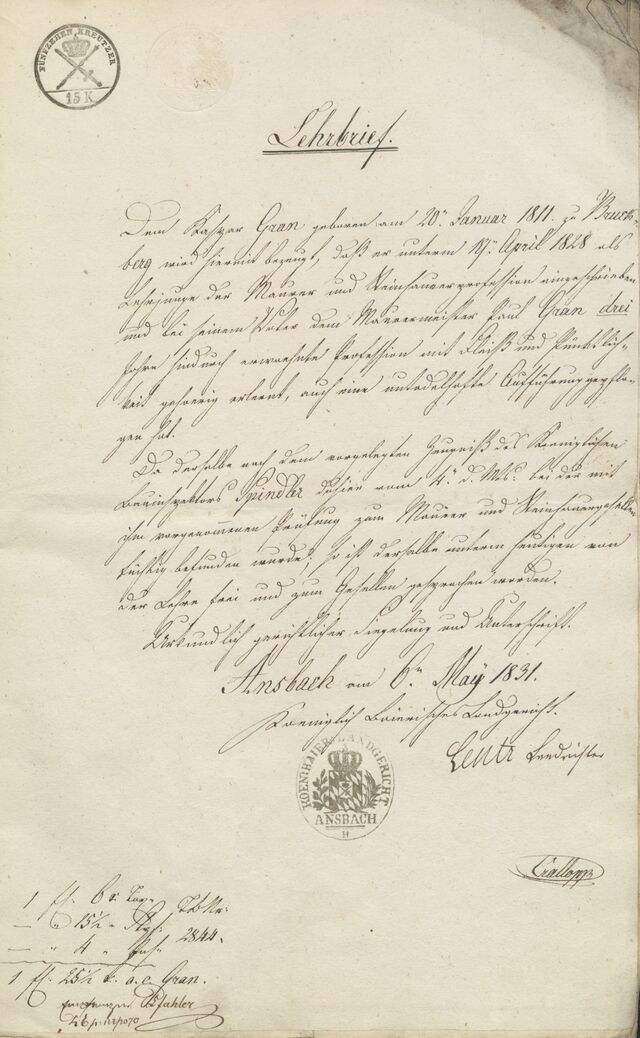 FÜNFZEHEN KREUTZER
15 K
Lehrbrief.
Dem Kaspar Gran geboren am 20n Januar 1811 zu Bruck-
berg wird hiermit bezeugt, daß er unterm 17n April 1828 als
Lehrjunge der Maurer und Steinhauerprofession eingeschrieben
und bei seinem Vater dem Maurermeister Paul Gran drei
Jahre hindurch erwaehnte Profession mit Fleiß und Pünktlich-
keit gehoerig erlernt, auch eine untadelhafte Aufführung gepflo-
gen hat.
Da derselbe nach dem vorgelegten Zeugniß des Koeniglichen
Bauinspektors Spindler dahier vom 4n d. Mts. bei der mit
ihm vorgenommenen Prüfung zum Maurer und Steinhauergesellen
tüchtig befunden wurde; so ist derselbe unterm heutigen von
der Lehre frei und zum Gesellen gesprochen worden.
Urkundlich gerichtlicher Siegelung und Unterschrift.
Ansbach am 6n May 1831.
Koeniglich Baierisches Landgericht.
KOEN: BAIER: LANDGERICHT
ANSBACH
Lentz Landrichter
1 fl. 6 x Tax.
— " 15½ "
— " 4 "
2844.
1 fl. 25½ x. Gran.
Pfahler